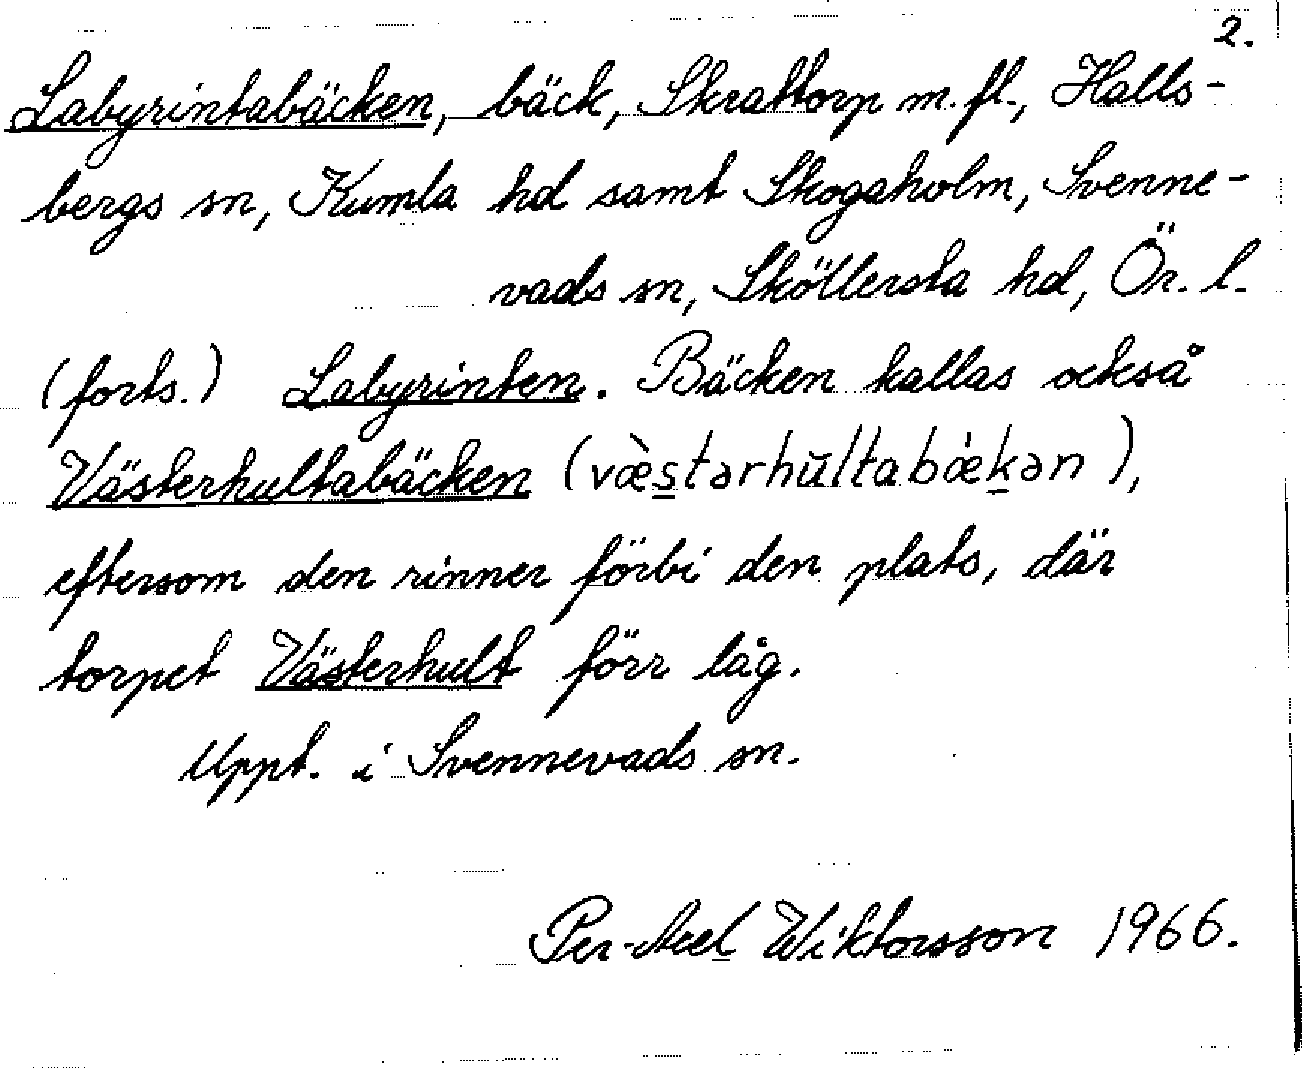 2.
Labyrintabäcken, bäck, Skrattorp m.fl., Halls-
bergs sn, Kumla hd samt Skogaholm, Svenne-
vads sn, Sköllersta hd, Ör. l.
(forts.) Labyrinten. Bäcken kallas också
Västerhultabäcken (væ̀stərhŭltabæ̇kən),
eftersom den rinner förbi den plats, där
torpet Västerhult förr låg.
Uppt. i Svennevads sn.
Per-Axel Wiktorsson 1966.